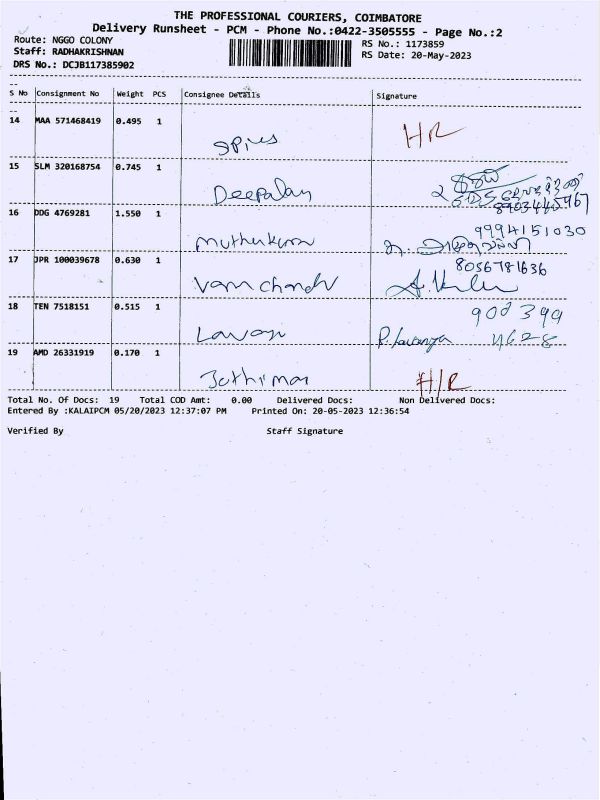 THE PROFESSIONAL COURIERS, COIMBATORE
Delivery Runsheet - PCM - Phone No.:0422-3505555 - Page No.:2
Route: NGGO COLONY
RS No.: 1173859
Staff: RADHAKRISHNAN
RS Date: 20-May-2023
DRS No.: DCJB117385902
S No Consignment No Weight PCS Consignee Details Signature
14 MAA 571468419 0.495 1
HR
15 SLM 320168754 0.745 1
Deepalay
2
8903440967
16 DDG 4769281 1.550 1
9994151030
17 JPR 100039678 0.630 1
8056781636
18 TEN 7518151 0.515 1
900 399
R. Lavanya 4628
19 AMD 26331919 0.170 1
Jothimai H/R
Total No. Of Docs: 19 Total COD Amt: 0.00 Delivered Docs: Non Delivered Docs:
Entered By :KALAIPCM 05/20/2023 12:37:07 PM Printed On: 20-05-2023 12:36:54
Verified By Staff Signature